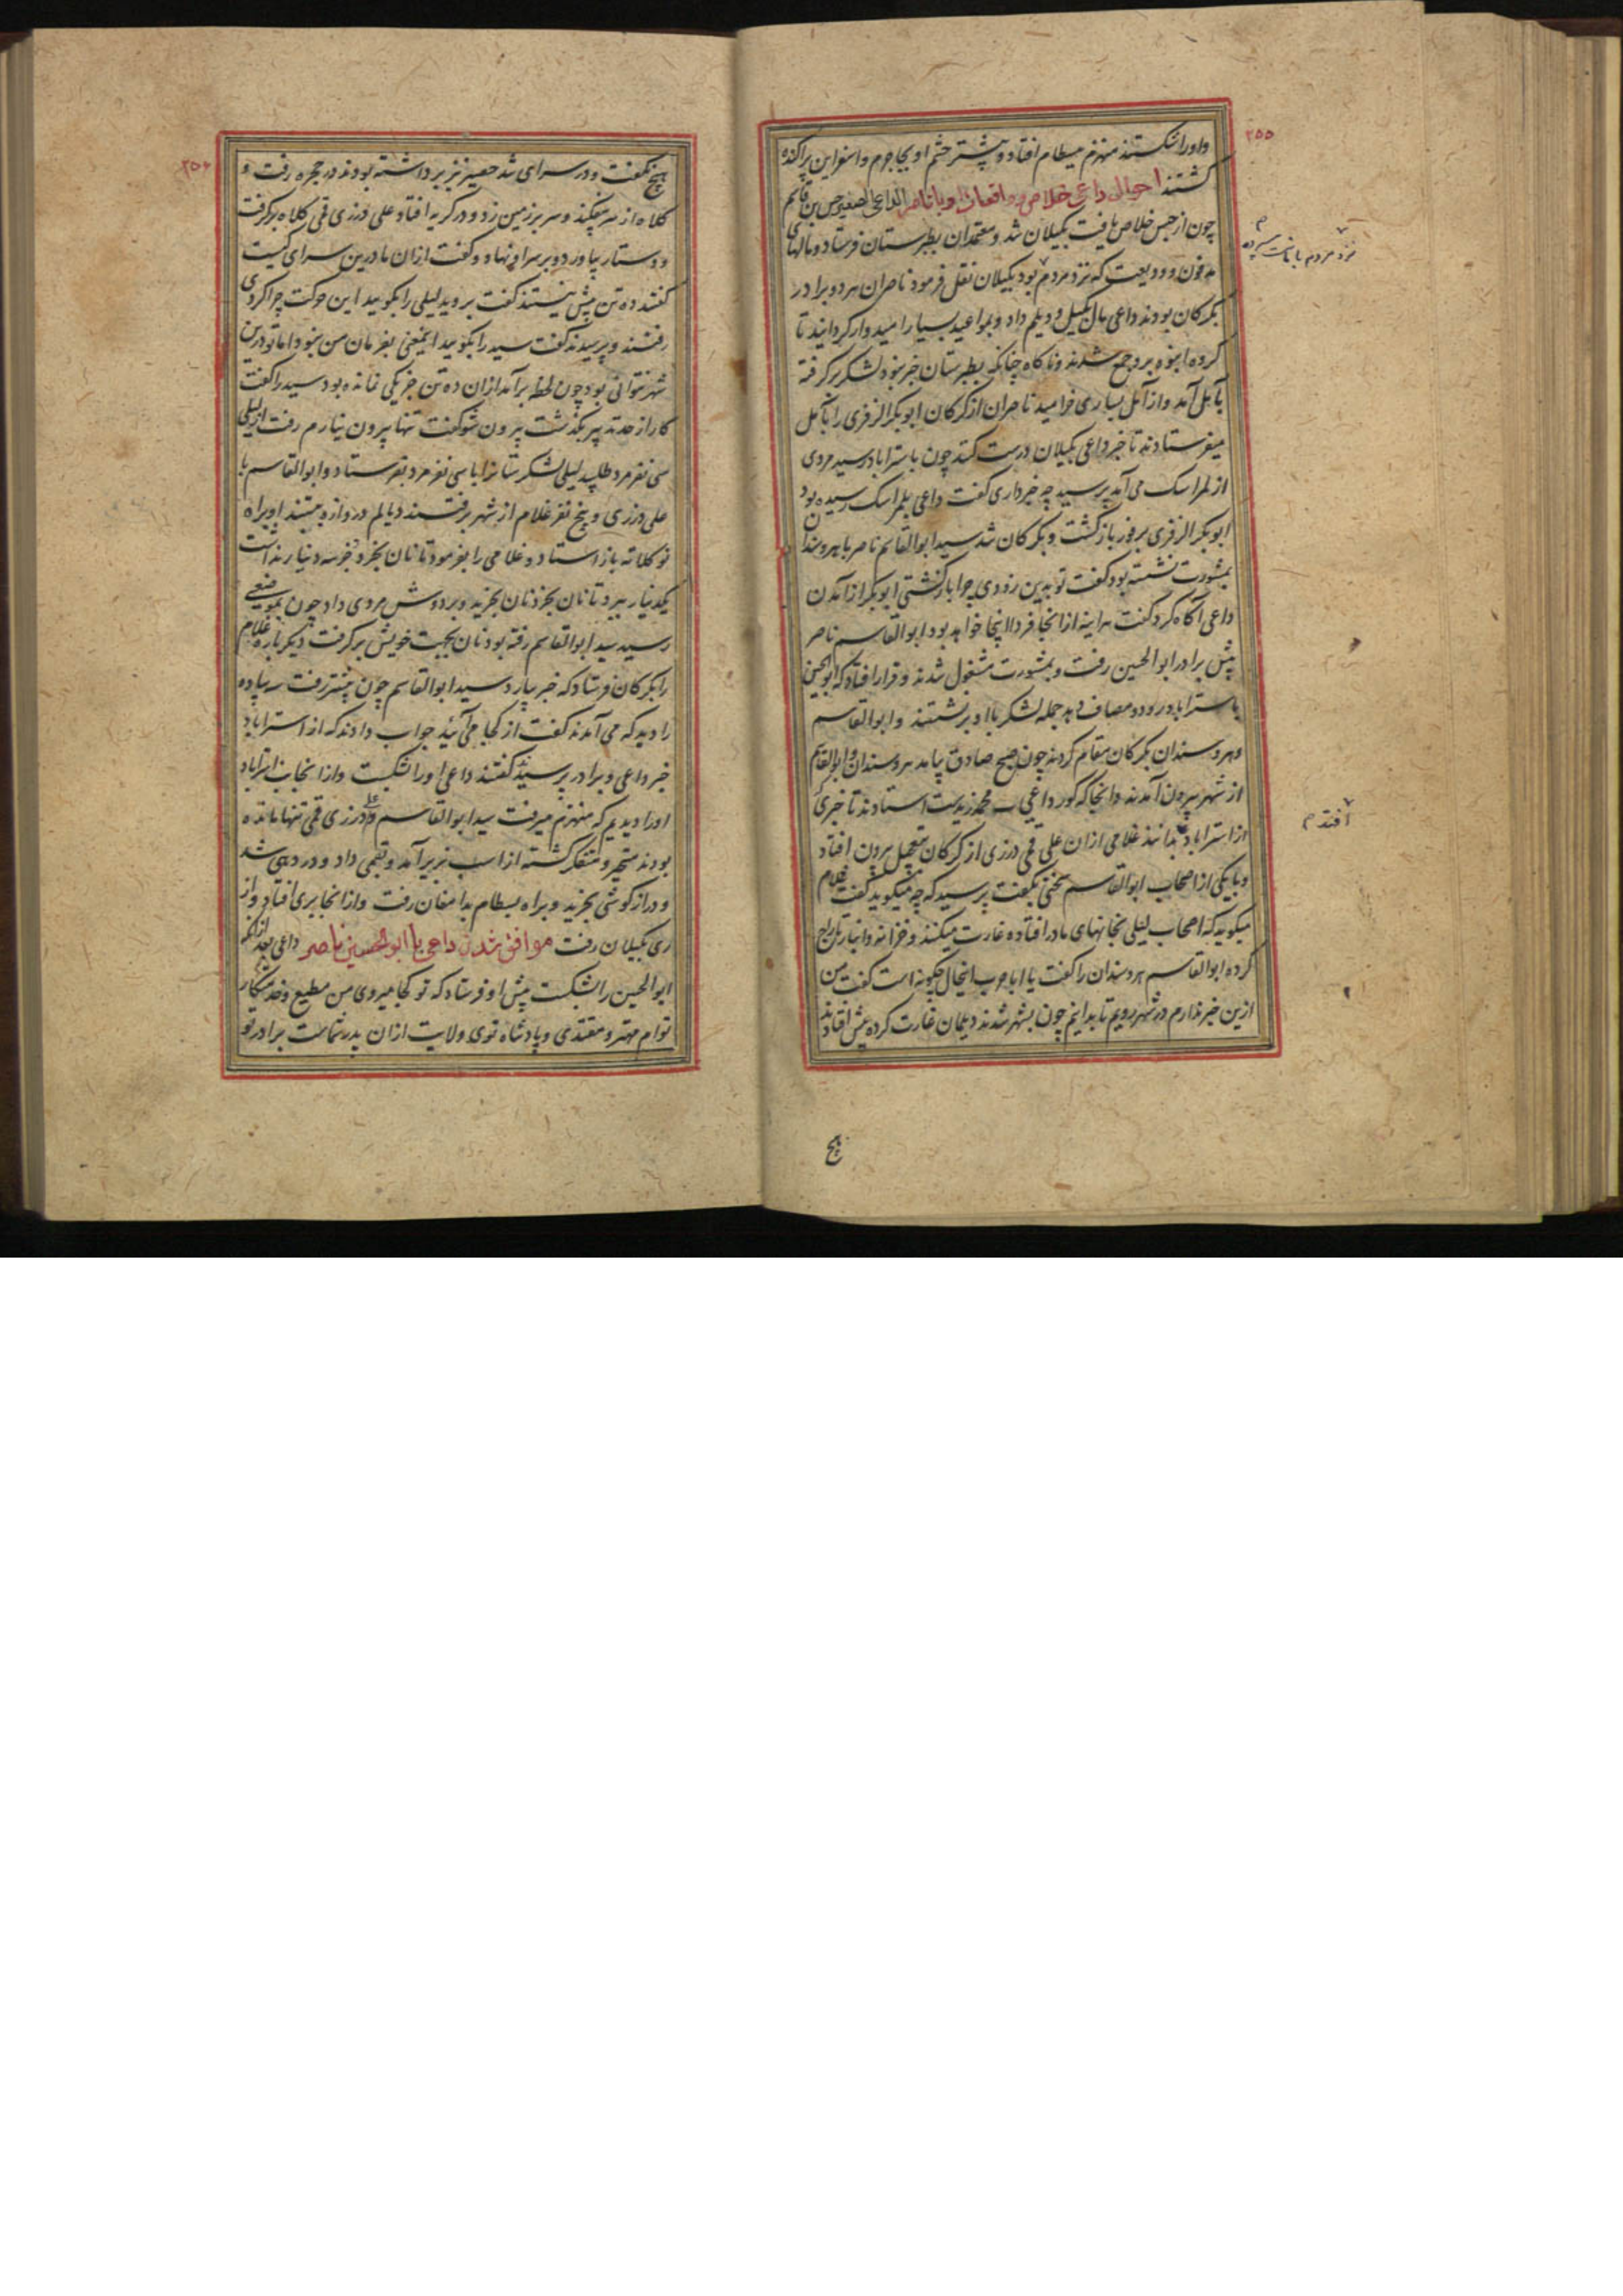 ۲۵۵
واورا شکستند منهزم ببسطام افتاد و بیشتر حشم او بجاجرم و اسفراین پراکنده
گشتند احوال داعی خلاص و واقعات او با ناصر الداعی الصغیر حسن بن قاسم
چون از حبس خلاص یافت بگیلان شد و معتمدان بطبرستان فرستاد و مالهای
مدفون و ودیعت که نزد مردم بود بگیلان نقل فرمود ناصران هر دو برادر
بگرگان بودند داعی مال بگیل و دیلم داد و بمواعید بسیار امیدوار گردانید تا
کرده انبوه برو جمع شدند و ناگاه چنانکه بطبرستان خبر نبود لشکر برگرفته
بآمل آمد و از آمل بساری خرامید ناصران از گرگان ابوبکر الزفری را بآمل
میفرستادند تا خبر داعی بگیلان درست کند چون باستراباد رسید مردی
از لمراسک می آمد پرسید چه خبر داری گفت داعی بلمراسک رسیده بود
ابوبکر الزفری بر فور بازگشت و بگرگان شد سید ابوالقاسم ناصر با هروسندان
بمشورت نشسته بود گفت تو بدین زودی چرا بازگشتی ابوبکر از آمدن
داعی آگاه کرد گفت هر آینه از آنجا فردا اینجا خواهد بود ابوالقاسم ناصر
پیش برادر ابوالحسین رفت و بمشورت مشغول شدند و قرار افتاد که ابوالحسین
باستراباد رود و مصاف دهد جمله لشکر با او برنشستند و ابوالقاسم
و هروسندان بگرگان مقام کردند چون صبح صادق بیامد هروسندان و ابوالقاسم
از شهر بیرون آمدند و آنجا که گور داعی محمد زیدست استادند تا خبری
از استراباد بدانند غلامی از آن علی قمی درزی از گرگان بتعجیل بیرون افتاد
و با یکی از اصحاب ابوالقاسم سخنی بگفت پرسید که چه میگوید گفت غلام
میگوید که اصحاب لیلی بخانهای ما در افتاده غارت میکنند و خزانه و انبار تاراج
کرده ابوالقاسم هروسندان را گفت یا ابا حرب اینحال چگونه است گفت من
ازین خبر ندارم در شهر رویم تا بدانیم چون بشهر شدند دیلمان غارت کرده پیش افتادند
نزد مردم بامانت سپرده
افتد م
هیچ
۲۵۶
هیچ نگفت و در سرای شد حصیر نیز برداشته بودند در حجره رفت و
کلاه از سر بیفکند و سر بر زمین زد و در گریه افتاد علی درزی قمی کلاه برگرفت
و دستار بیاورد و بر سر او نهاد و گفت از آن ما درین سرای کیست
گفتند ده تن بیش نیستند گفت بروید لیلی را بگویید این حرکت چرا کردی
رفتند و پرسیدند گفت سید را بگویید اینمعنی بفرمان من نبود اما تو درین
شهر نتوانی بود چون لحظه برآمد از آن ده تن جز یکی نمانده بود سید را گفت
کار از حد تدبیر بگذشت بیرون شو گفت تنها بیرون نیارم رفت از لیلی
سی نفر مرد طلبید لیلی لشکرستان را با سی نفر مرد بفرستاد و ابوالقاسم با
علی درزی و پنج نفر غلام از شهر برفتند دیالم دروازه ببستند او براه
نوکلاته باز استاد و غلامی را بفرمود تا نان بخرد جز سه دینار نداشت
یکدینار ببرد تا نان بخرد نان بخرید و بر دوش مردی داد چون بموضعی
رسید سید ابوالقاسم رفته بود نان بجهت خویش برگرفت دیگر باره غلام
را بگرگان فرستاد که خبر بیارد سید ابوالقاسم چون پیشتر رفت سه پیاده
را دید که می آمدند گفت از کجا می آئید جواب دادند که از استراباد
خبر داعی و برادر پرسید گفتند داعی او را شکست و از آنجانب استراباد
او را دیدیم که منهزم میرفت سید ابوالقاسم و علی درزی قمی تنها مانده
بودند متحیر و متفکر گشته از اسب بزیر آمد و بقمی داد و در دهی شد
و درازگوشی بخرید و براه بسطام بدامغان رفت و از آنجا بری افتاد و از
ری بگیلان رفت موافق شدن داعی با ابوالحسین ناصر داعی بعد از آنکه
ابوالحسین را شکست پیش او فرستاد که تو کجا میروی من مطیع و خدمتکار
توام مهتر و مقتدی و پادشاه توی ولایت از آن پدر شماست برادر تو